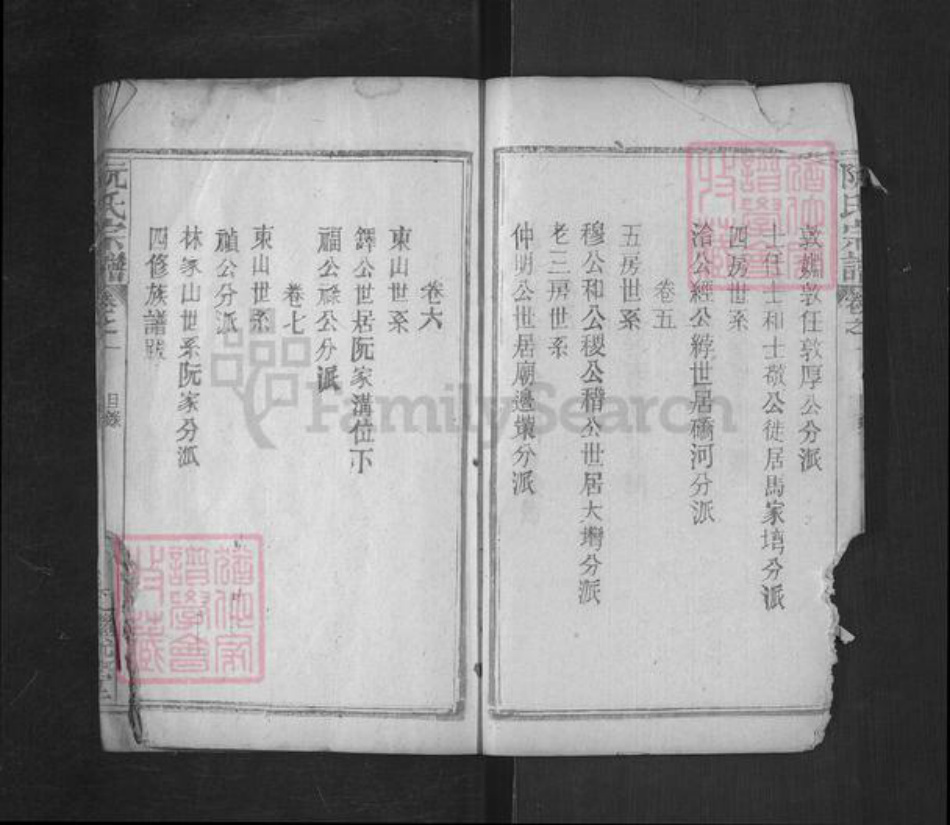 阮氏宗譜
卷之一
敦嫺敦任敦厚公分派
士任士和士敬公徙居馬家塆分派
四房世系
洽公經公綍世居礄河分派
卷五
五房世系
穆公和公稷公稽公世居大塆分派
老三房世系
仲明公世居廟邊壪分派
卷六
東山世系
鐸公世居阮家溝位下
福公祿公分派
卷七
東山世系
禎公分派
林家山世系阮家分派
四修族譜跋
阮氏宗譜
卷之一
目錄
FamilySearch
譜學會
收藏
譜學會
收藏